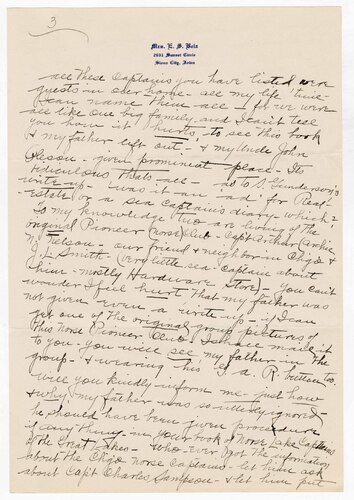 3
Mrs. E. S. Bois
2601 Sunset Circle
Sioux City, Iowa
all these Captains you have listed were
guests in our home - all my life time-
I can name them all - for we were
all like one big family, and I can't tell
you how it hurts to see this book
& my father left out - & my Uncle John
Oleson - given prominent place - Its
ridiculous thats all - as to S. Gunderson's
write-up - was it an "ad" for Real-
estate or a sea Captains diary which?
To my knowledge two are living of the
original Pioneer (norse) Club - Capt Arthur (Archie
N. Nelson - our friend & neighbor in Ohio &
J. L. Smith - (very little sea-Captain about
him - mostly Hardware Store) - You can't
wonder I feel hurt that my father was
not given even a write up - if I can
get one of the original group pictures of
this norse Pioneer Club I shall mail it
to you - you will see my father in the
group - & wearing his G. A. R. button too.
Will you kindly inform me - just how
& why my father was so utterly ignored -
he should have been given procedure
if any thing - in your book of norse Lake Captains
of the Great Lakes - Who-ever got the information
about the Ohio norse Captains - let him ask
about Capt Charles Sampson - & let him put